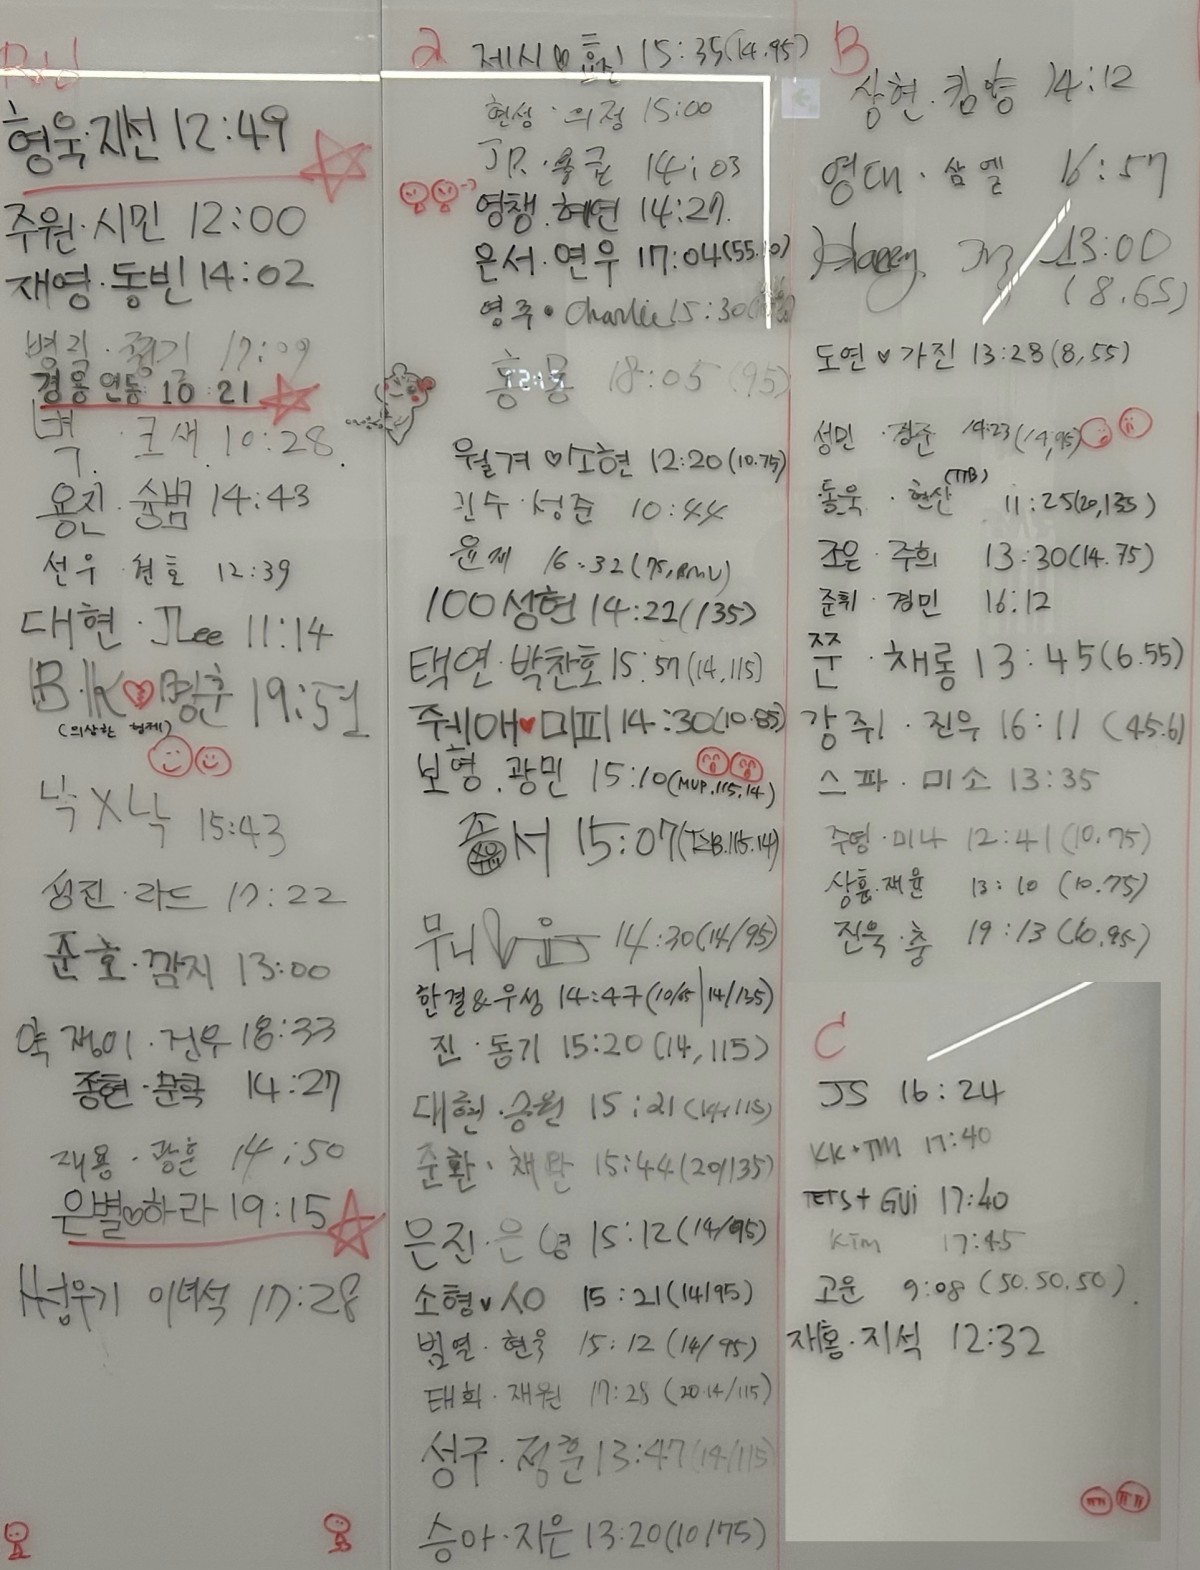 형욱·지선 12:49
주원·시민 12:00
재영·동빈 14:02
병길· 17:09
경용 연동 10:21
벽. 크새 10:28.
용진·슝범 14:43
선우·현호 12:39
대현·JLee 11:14
B.K♥명훈 19:51
(의상한 형제)
낙X낙 15:43
성진·라드 17:22
준호·깜지 13:00
약쟁이·건우 18:33
종현·문학 14:27
재용·광훈 14:50
은별♡하라 19:15
섭우기 이녀석 17:28
a
제시♥효진 15:35(14.95)
현성·의정 15:00
JR·용균 14:03
영챙·혜연 14:27.
은서·연우 17:04(55.10)
영주·Charlie 15:30
18:05 (95)
월겨♡소현 12:20(10.75)
진수·성준 10:44
윤제 16:32(75,RMU)
100성현 14:22(135)
택연·박찬호 15:57(14,115)
쥬니애♥미피 14:30(10.85)
보형·광민 15:10(MVP.115.14)
종서 15:07(TSB.115.14)
무니♡윤 14:30(14/95)
한결&우성 14:47(10/65|14/135)
진·동기 15:20(14,115)
대현·승원 15:21(14,115)
준환·채만 15:44(20/135)
은진·은영 15:12(14/95)
소형♥시O 15:21(14/95)
범열·현욱 15:12(14/95)
태희·재원 17:28(20.14/115)
성구·정훈 13:47(14/115)
승아·지은 13:20(10/75)
B
상현·킴양 14:12
영대·삼엘 16:57
Happy. 13:00
(8.65)
도연♥가진 13:28(8,55)
성민·정준 14:23(14,95)
동욱·현산(TTB) 11:25(20,135)
조은·주희 13:30(14.75)
준휘·경민 16:12
쭌·채롱 13:45(6.55)
강쥐·진우 16:11(45.6)
스파·미소 13:35
주영·미나 12:41(10.75)
상훈·재윤 13:10(10.75)
진욱·충 19:13(60.95)
C
JS 16:24
KK+TM 17:40
TETS+GUi 17:40
KTM 17:45
고운 9:08(50.50.50).
재홍·지석 12:32